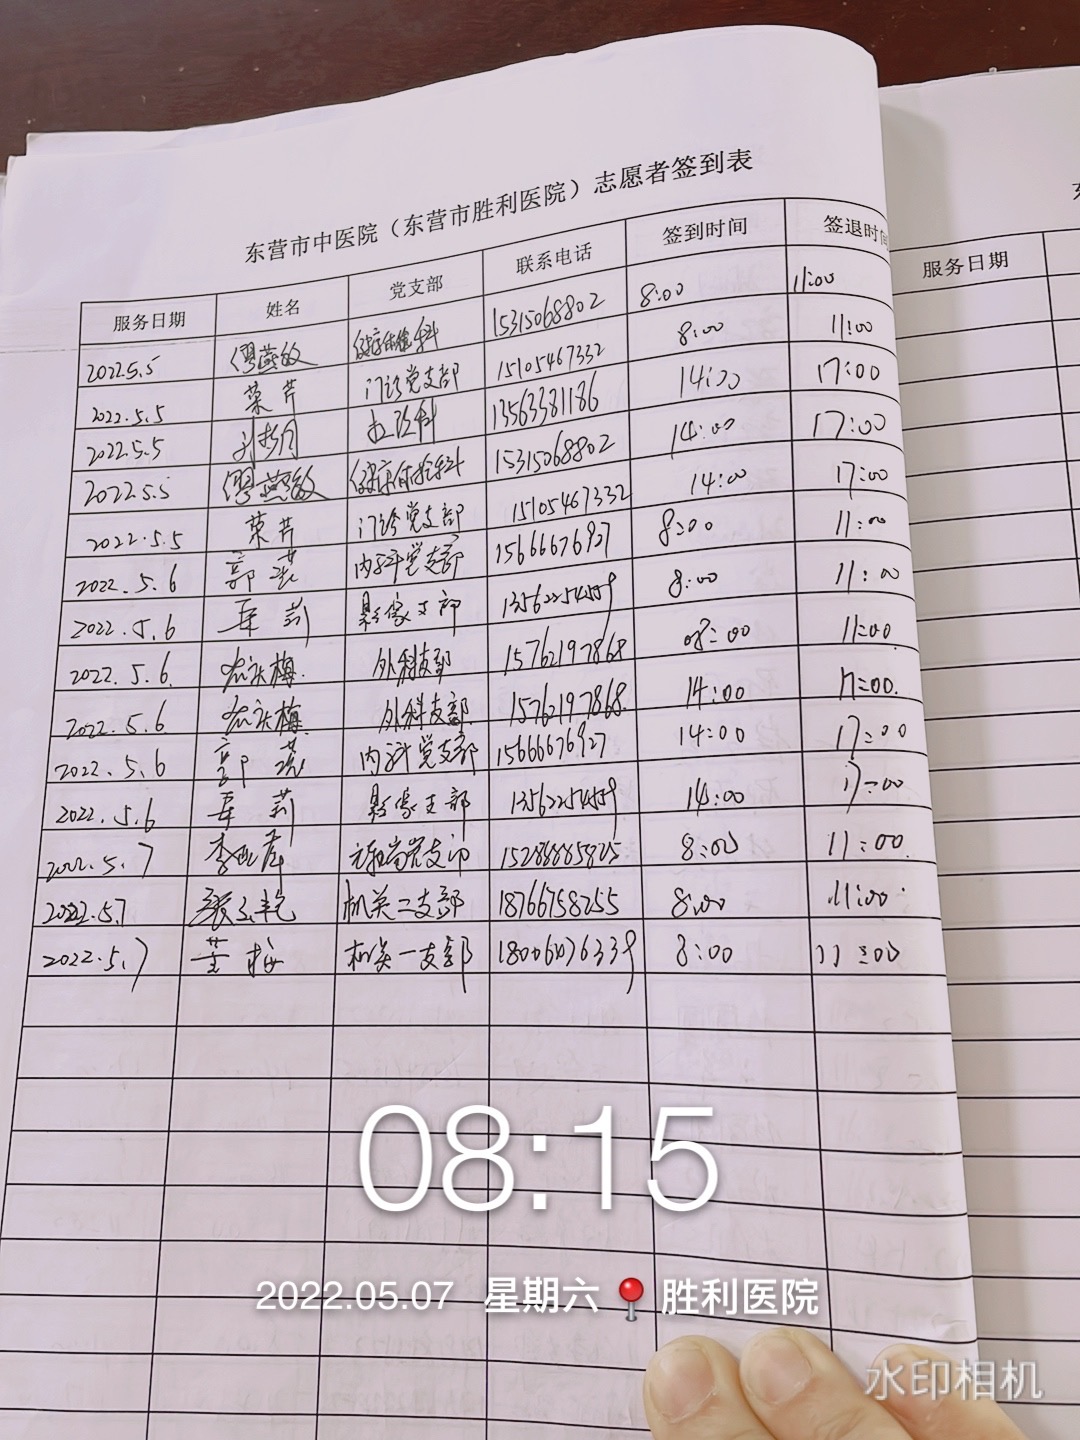 东营市中医院（东营市胜利医院）志愿者签到表
服务日期 姓名 党支部 联系电话 签到时间 签退时间
服务日期
2022.5.5 缪燕敏 健康体检科 15315068802 8:00 11:00
2022.5.5 荣芹 门诊党支部 15105467332 8:00 11:00
2022.5.5 13563381186 14:00 17:00
2022.5.5 缪燕敏 健康体检科 15315068802 14:00 17:00
2022.5.5 荣芹 门诊党支部 15105467332 14:00 17:00
2022.5.6 郭 内科党支部 15666676927 8:00 11:00
2022.5.6 莉 影像支部 13562254559 8:00 11:00
2022.5.6. 梅 外科支部 15762197868 08:00 11:00
2022.5.6 梅 外科支部 15762197868 14:00 17:00.
2022.5.6 郭 内科党支部 15666676927 14:00 17:00
2022.5.6 莉 影像支部 13562254559 14:00 17:00
2022.5.7 李 党支部 15288885825 8:00 11:00
2022.5.7 机关二支部 18766758255 8:00 11:00
2022.5.7 董梅 机关一支部 18006076339 8:00 11:00
08:15
2022.05.07 星期六 胜利医院
水印相机